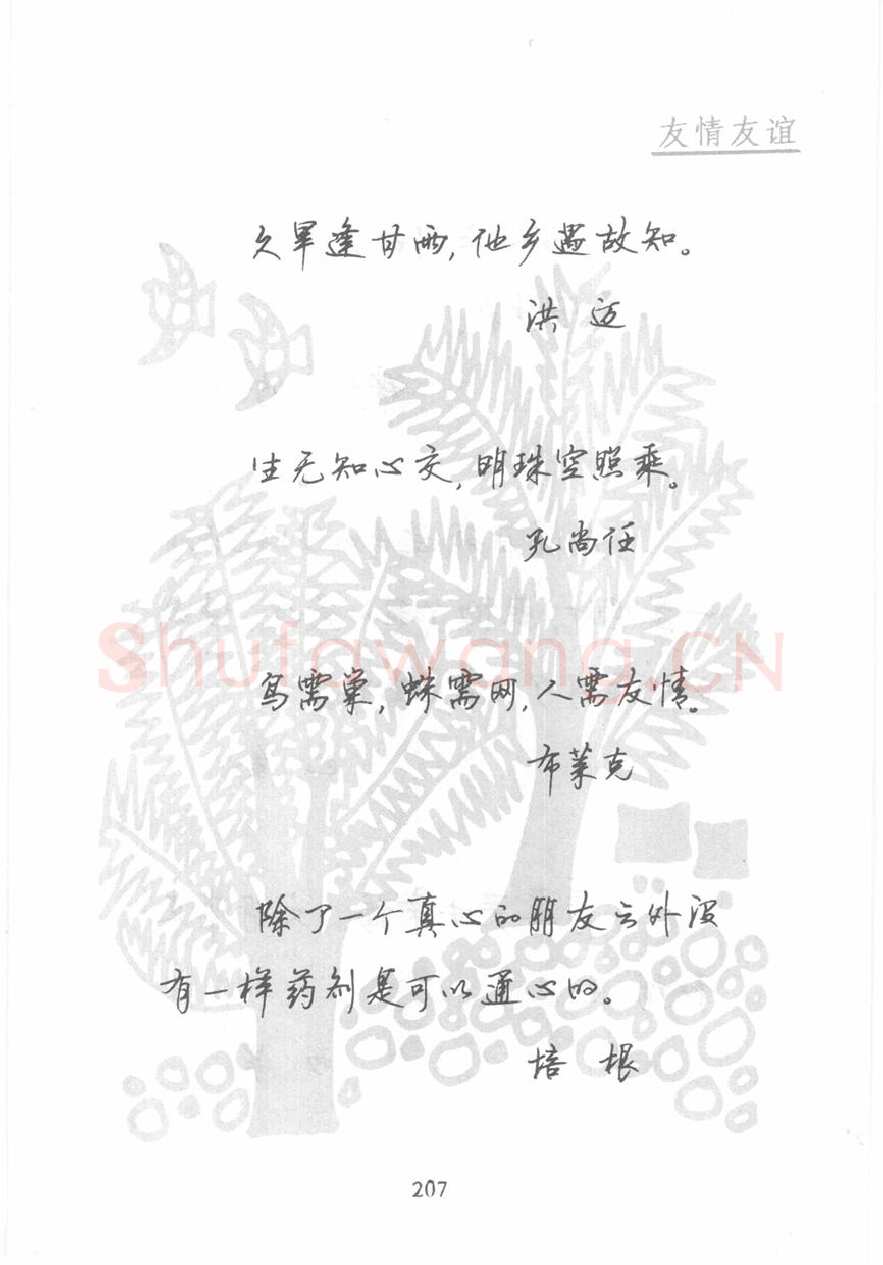 友情友谊
久旱逢甘雨,他乡遇故知。
洪 迈
生无知心交,明珠空照乘。
孔尚任
鸟需巢,蛛需网,人需友情。
布莱克
除了一个真心的朋友之外没
有一样药剂是可以通心的。
培 根
207
Shufawang.CN